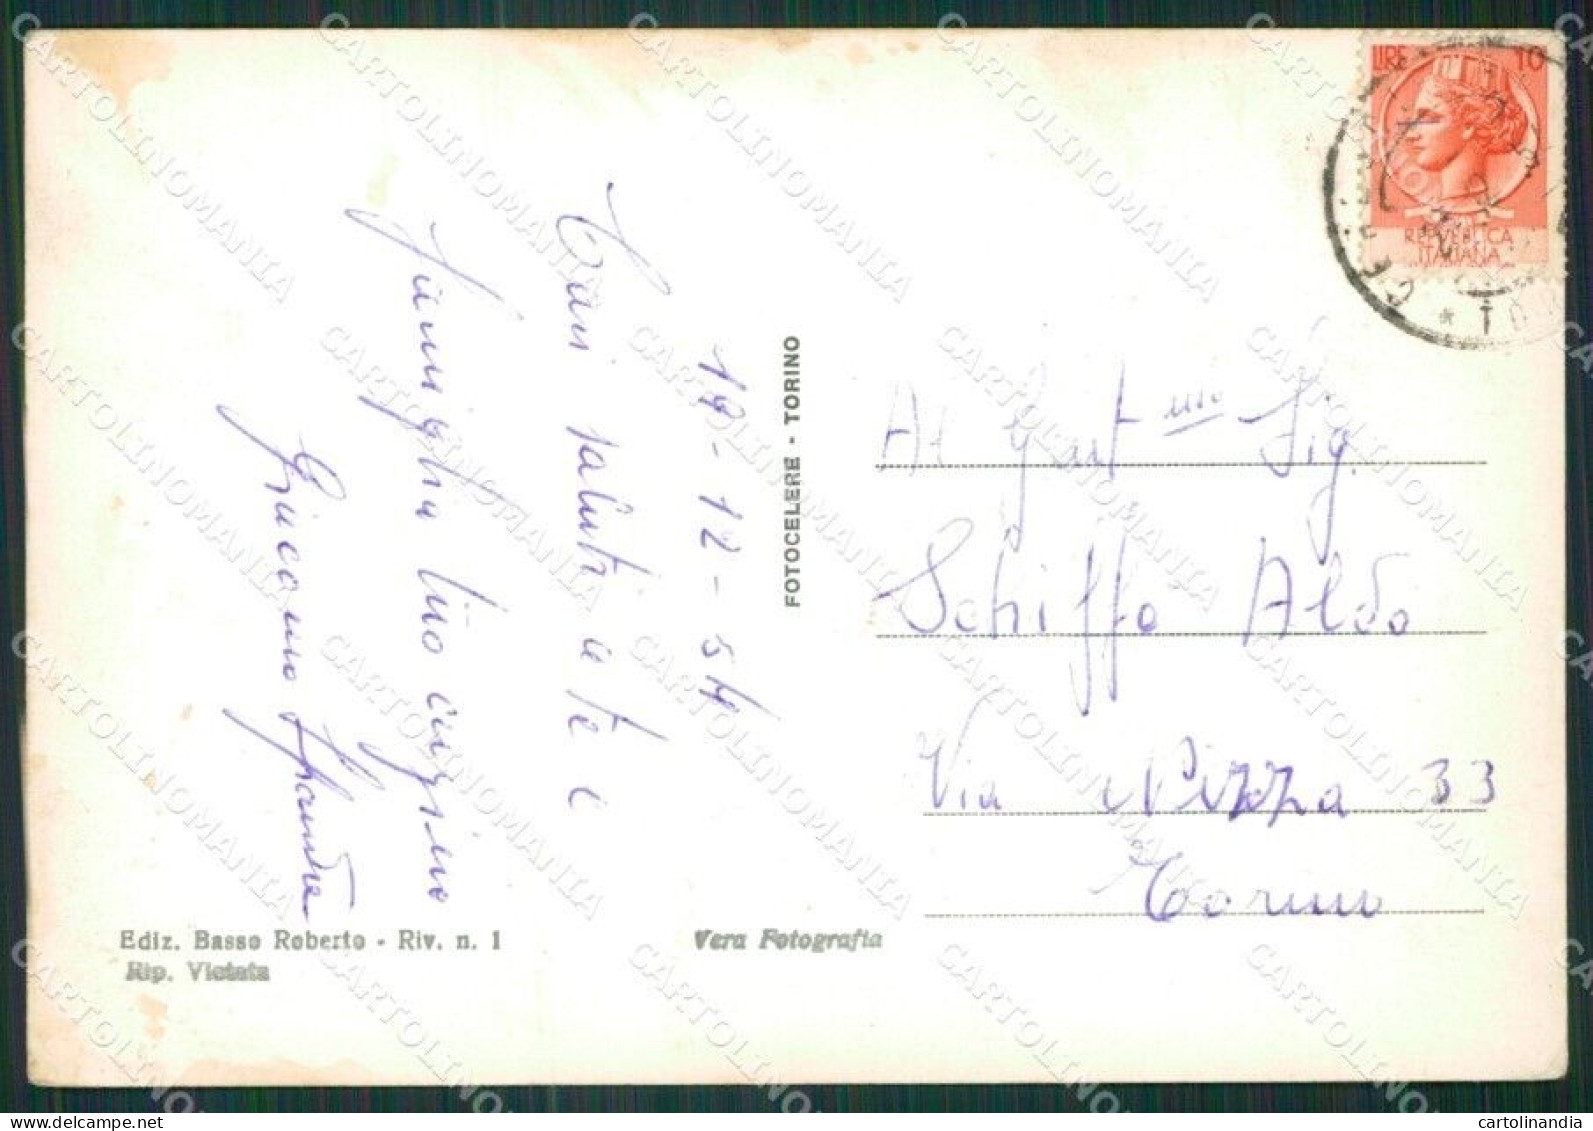 LIRE 10
REPVBBLICA
ITALIANA
12-54
Cari saluti a te e
famiglia tuo cugino
Giacomo
FOTOCELERE - TORINO
Al Gent.mo Sig.
Schiffo Aldo
Via Nizza 33
Torino
Ediz. Basso Roberto - Riv. n. 1
Rip. Vietata
Vera Fotografia
CARTOLINOMANIA
cartolinandia